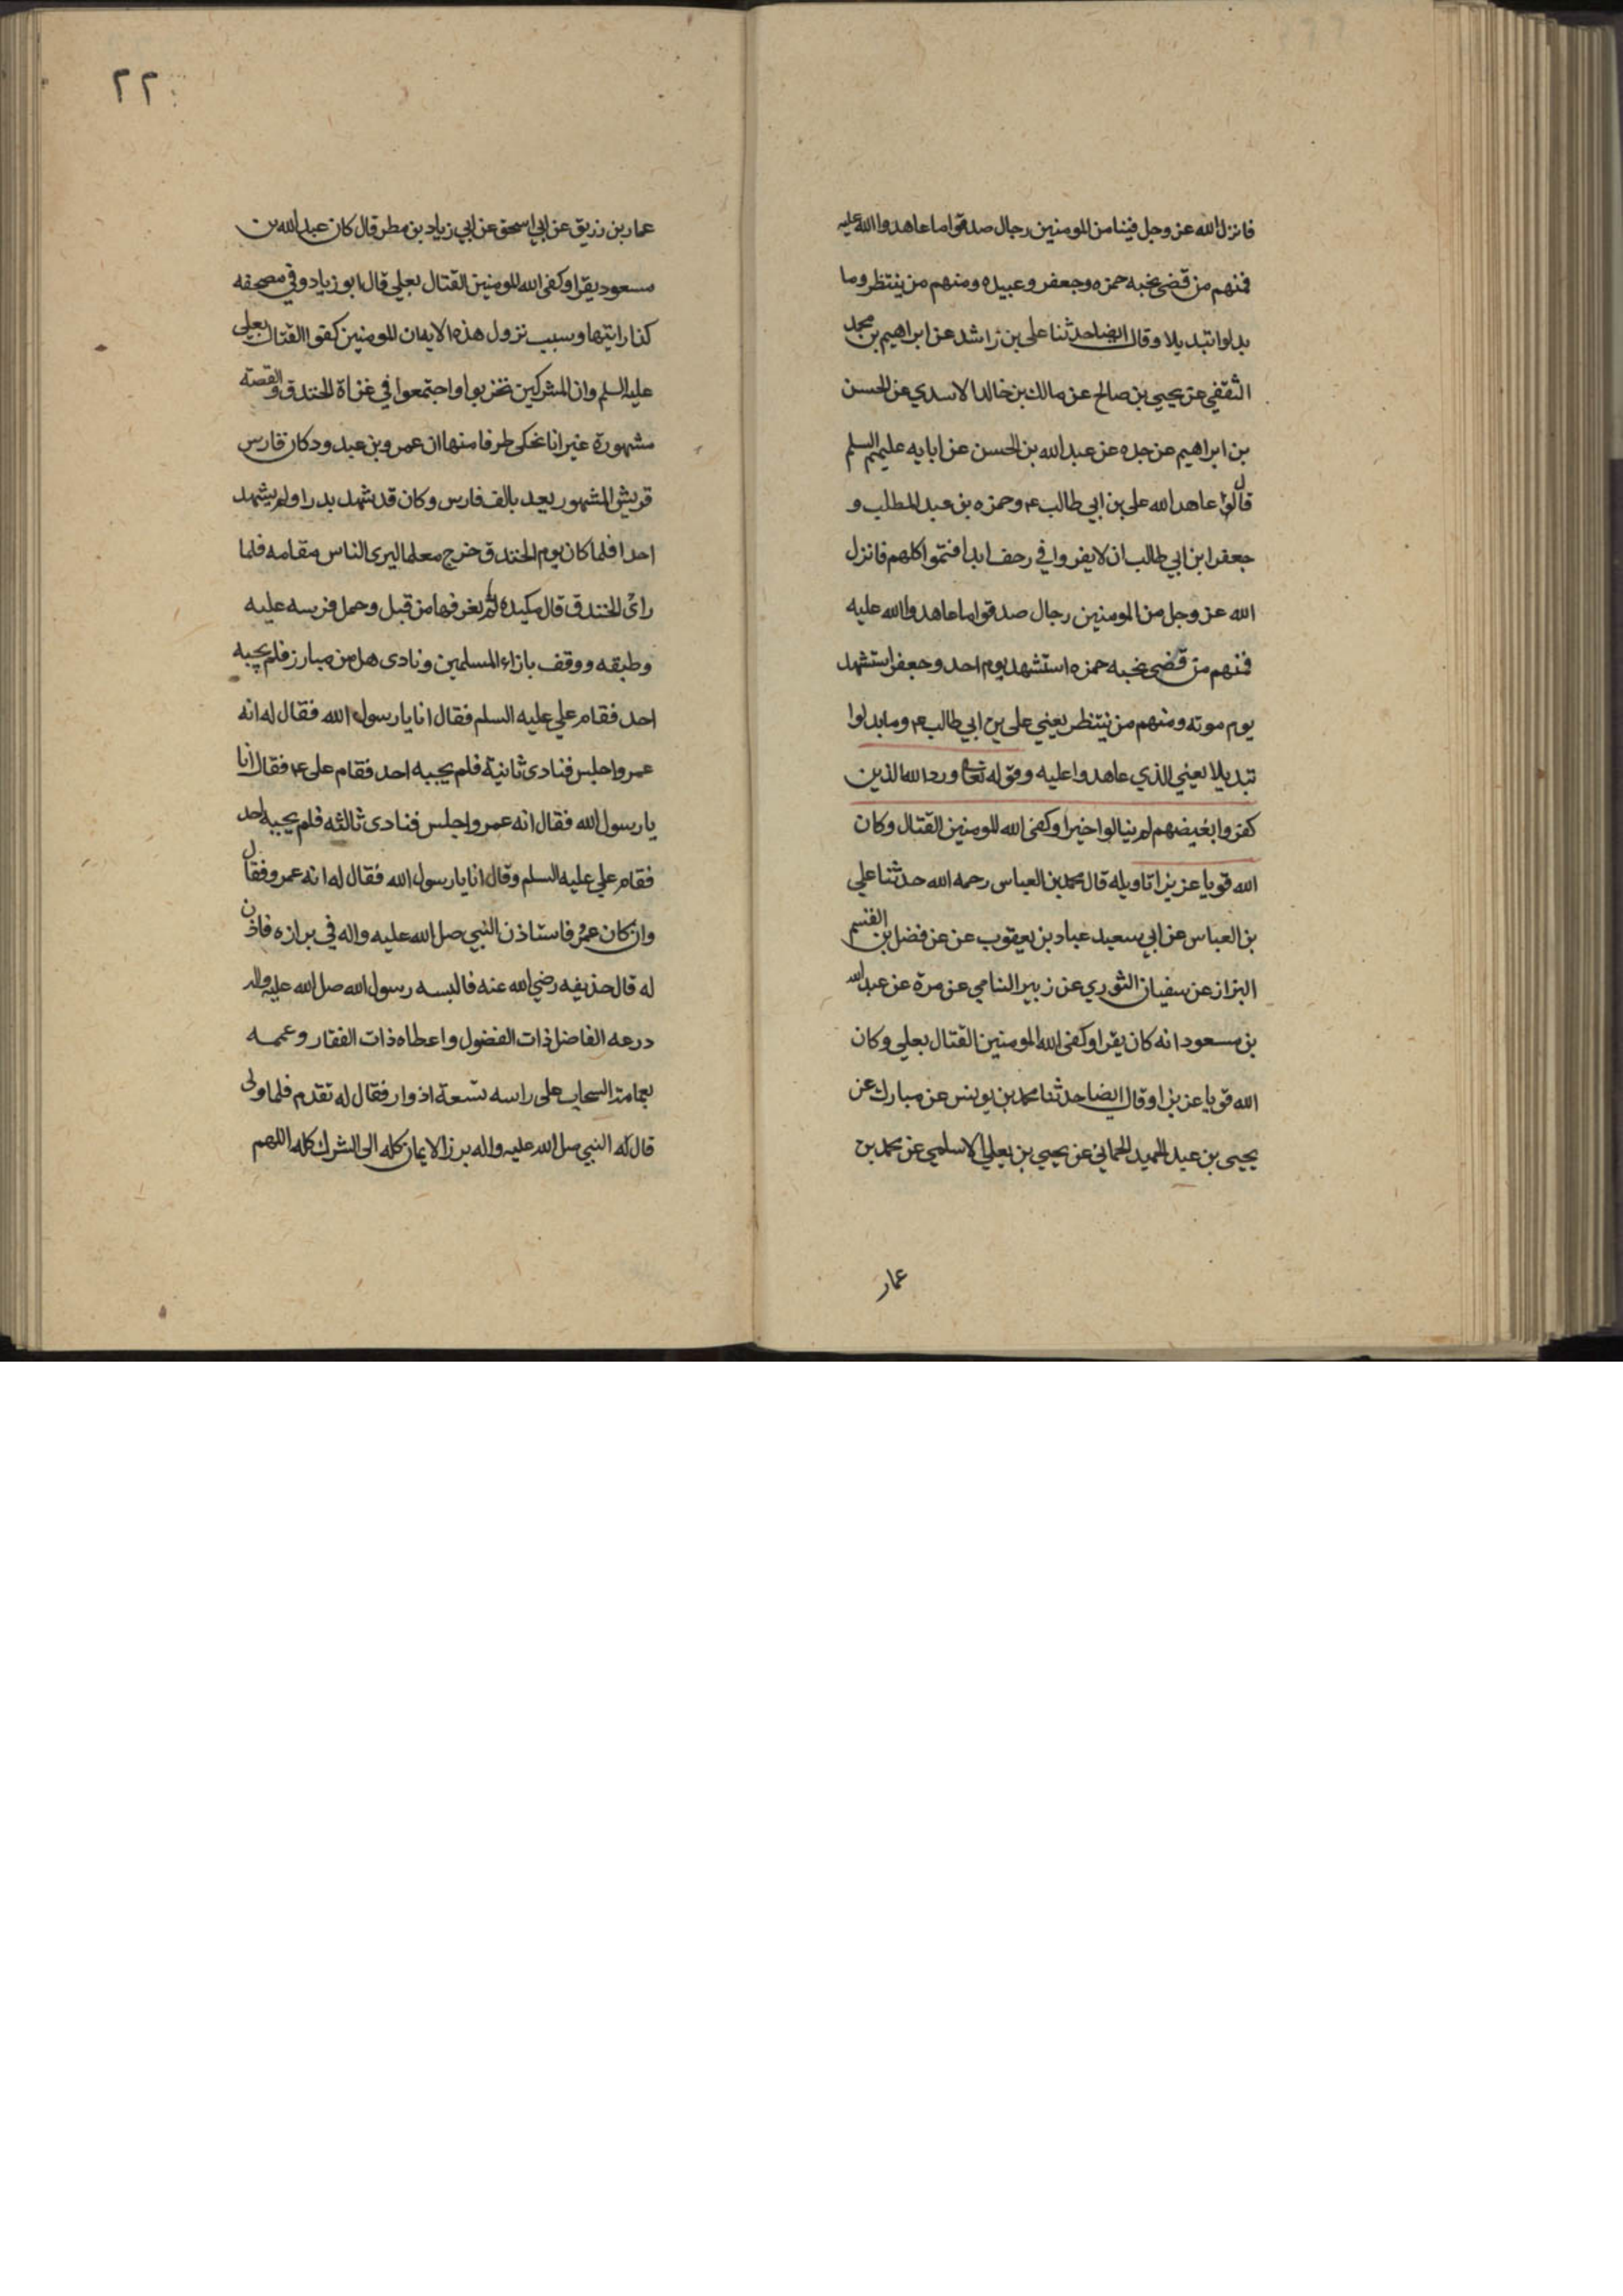 فانزل الله عز وجل فينا من المومنين رجال صدقوا ما عاهدوا الله عليه
فمنهم من قضى نحبه حمزه وجعفر وعبيده ومنهم من ينتظر وما
بدلوا تبديلا وقال ايضا حدثنا علي بن راشد عن ابراهيم بن محمد
الثقفي عن يحيى بن صالح عن مالك بن خالد الاسدي عن الحسن
بن ابراهيم عن جده عن عبد الله بن الحسن عن ابايه عليهم السلم
قال عاهد الله علي بن ابي طالب ع وحمزه بن عبد المطلب و
جعفر ابن ابي طالب ان لا يفروا في زحف ابدا فتموا كلهم فانزل
الله عز وجل من المومنين رجال صدقوا ما عاهدوا الله عليه
فمنهم من قضى نحبه حمزه استشهد يوم احد وجعفر استشهد
يوم موته ومنهم من ينتظر يعني علي بن ابي طالب ع وما بدلوا
تبديلا يعني الذي عاهدوا عليه وقوله تعالى ورد الله الذين
كفروا بغيضهم لم ينالوا خيرا وكفى الله المومنين القتال وكان
الله قويا عزيزا تاويله قال محمد بن العباس رحمه الله حدثنا علي
بن العباس عن ابي سعيد عباد بن يعقوب عن عن فضل بن القسم
البزاز عن سفيان الثوري عن زبير النامي عن مرة عن عبد الله
بن مسعود انه كان يقرا وكفى الله المومنين القتال بعلي وكان
الله قويا عزيزا وقال ايضا حدثنا محمد بن يونس عن مبارك عن
يحيى بن عبد الحميد الحماني عن يحيى بن يعلي الاسلمي عن محمد بن
عمار
٢٢
عمار بن زريق عن ابي اسحق عن ابي زياد بن مطر قال كان عبد الله بن
مسعود يقرا وكفى الله المومنين القتال بعلي قال ابو زياد وفي مصحفه
كذا رايتها وسبب نزول هذه الايه ان المومنين كفوا القتال بعلي
عليه السلم وان المشركين تحزبوا واجتمعوا في غزاة الخندق والقصته
مشهورة غير انا نحكي طرفا منها ان عمرو بن عبد ود كان فارس
قريش المشهور يعد بالف فارس وكان قد شهد بدرا ولم يشهد
احدا فلما كان يوم الخندق خرج معلما ليرى الناس مقامه فلما
راى الخندق قال مكيدة لم نعرفها من قبل وحمل فرسه عليه
وطبقه ووقف بازاء المسلمين ونادى هل من مبارز فلم يجبه
احد فقام علي عليه السلم فقال انا يا رسول الله فقال له انه
عمرو اجلس فنادى ثانية فلم يجبه احد فقام علي ع فقال انا
يا رسول الله فقال انه عمرو اجلس فنادى ثالثه فلم يجبه احد
فقام علي عليه السلم وقال انا يا رسول الله فقال له انه عمرو فقال
وان كان عمرو فاستاذن النبي صل الله عليه واله في برازه فاذن
له قال حذيفه رضي الله عنه فالبسه رسول الله صل الله عليه واله
درعه الفاضل ذات الفضول واعطاه ذات الفقار وعممه
بعمامته السحاب على راسه تسعة ادوار فقال له تقدم فلما ولى
قال له النبي صل الله عليه واله برز الايمان كله الى الشرك كله اللهم